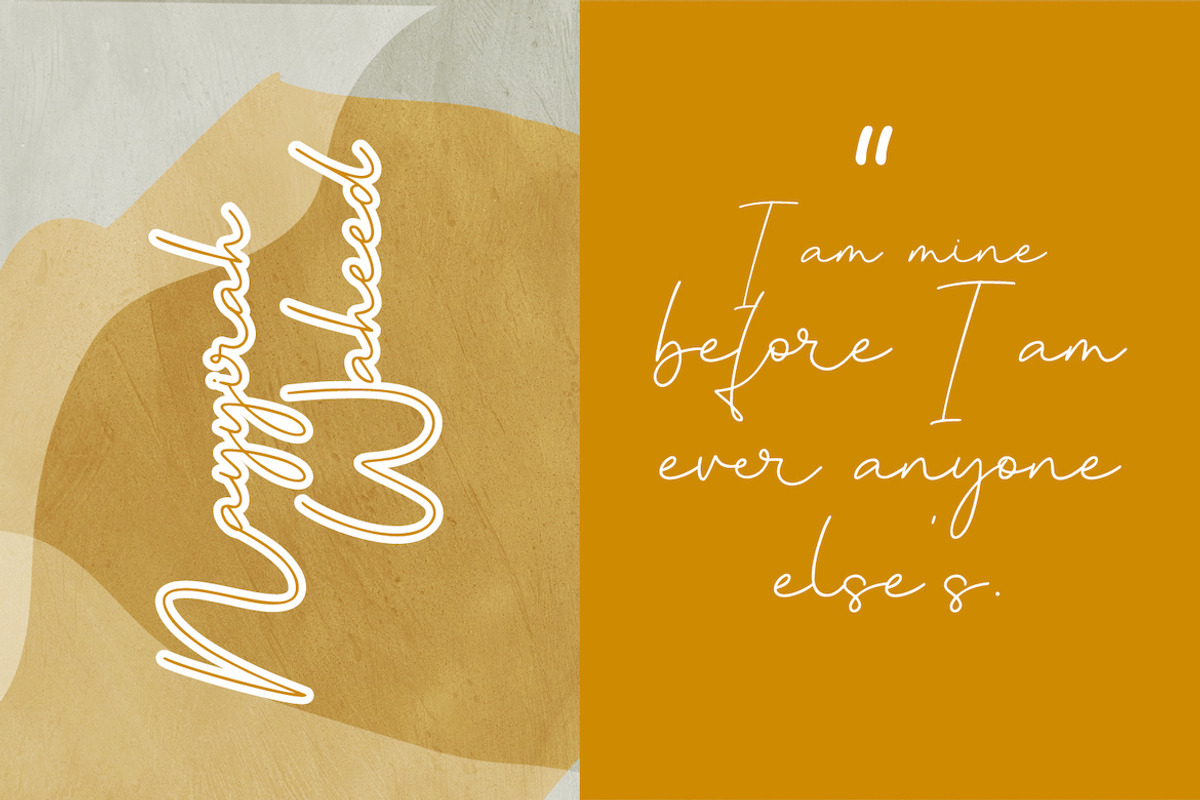 Nayyirah
Waheed
"
I am mine
before I am
ever anyone
else's.